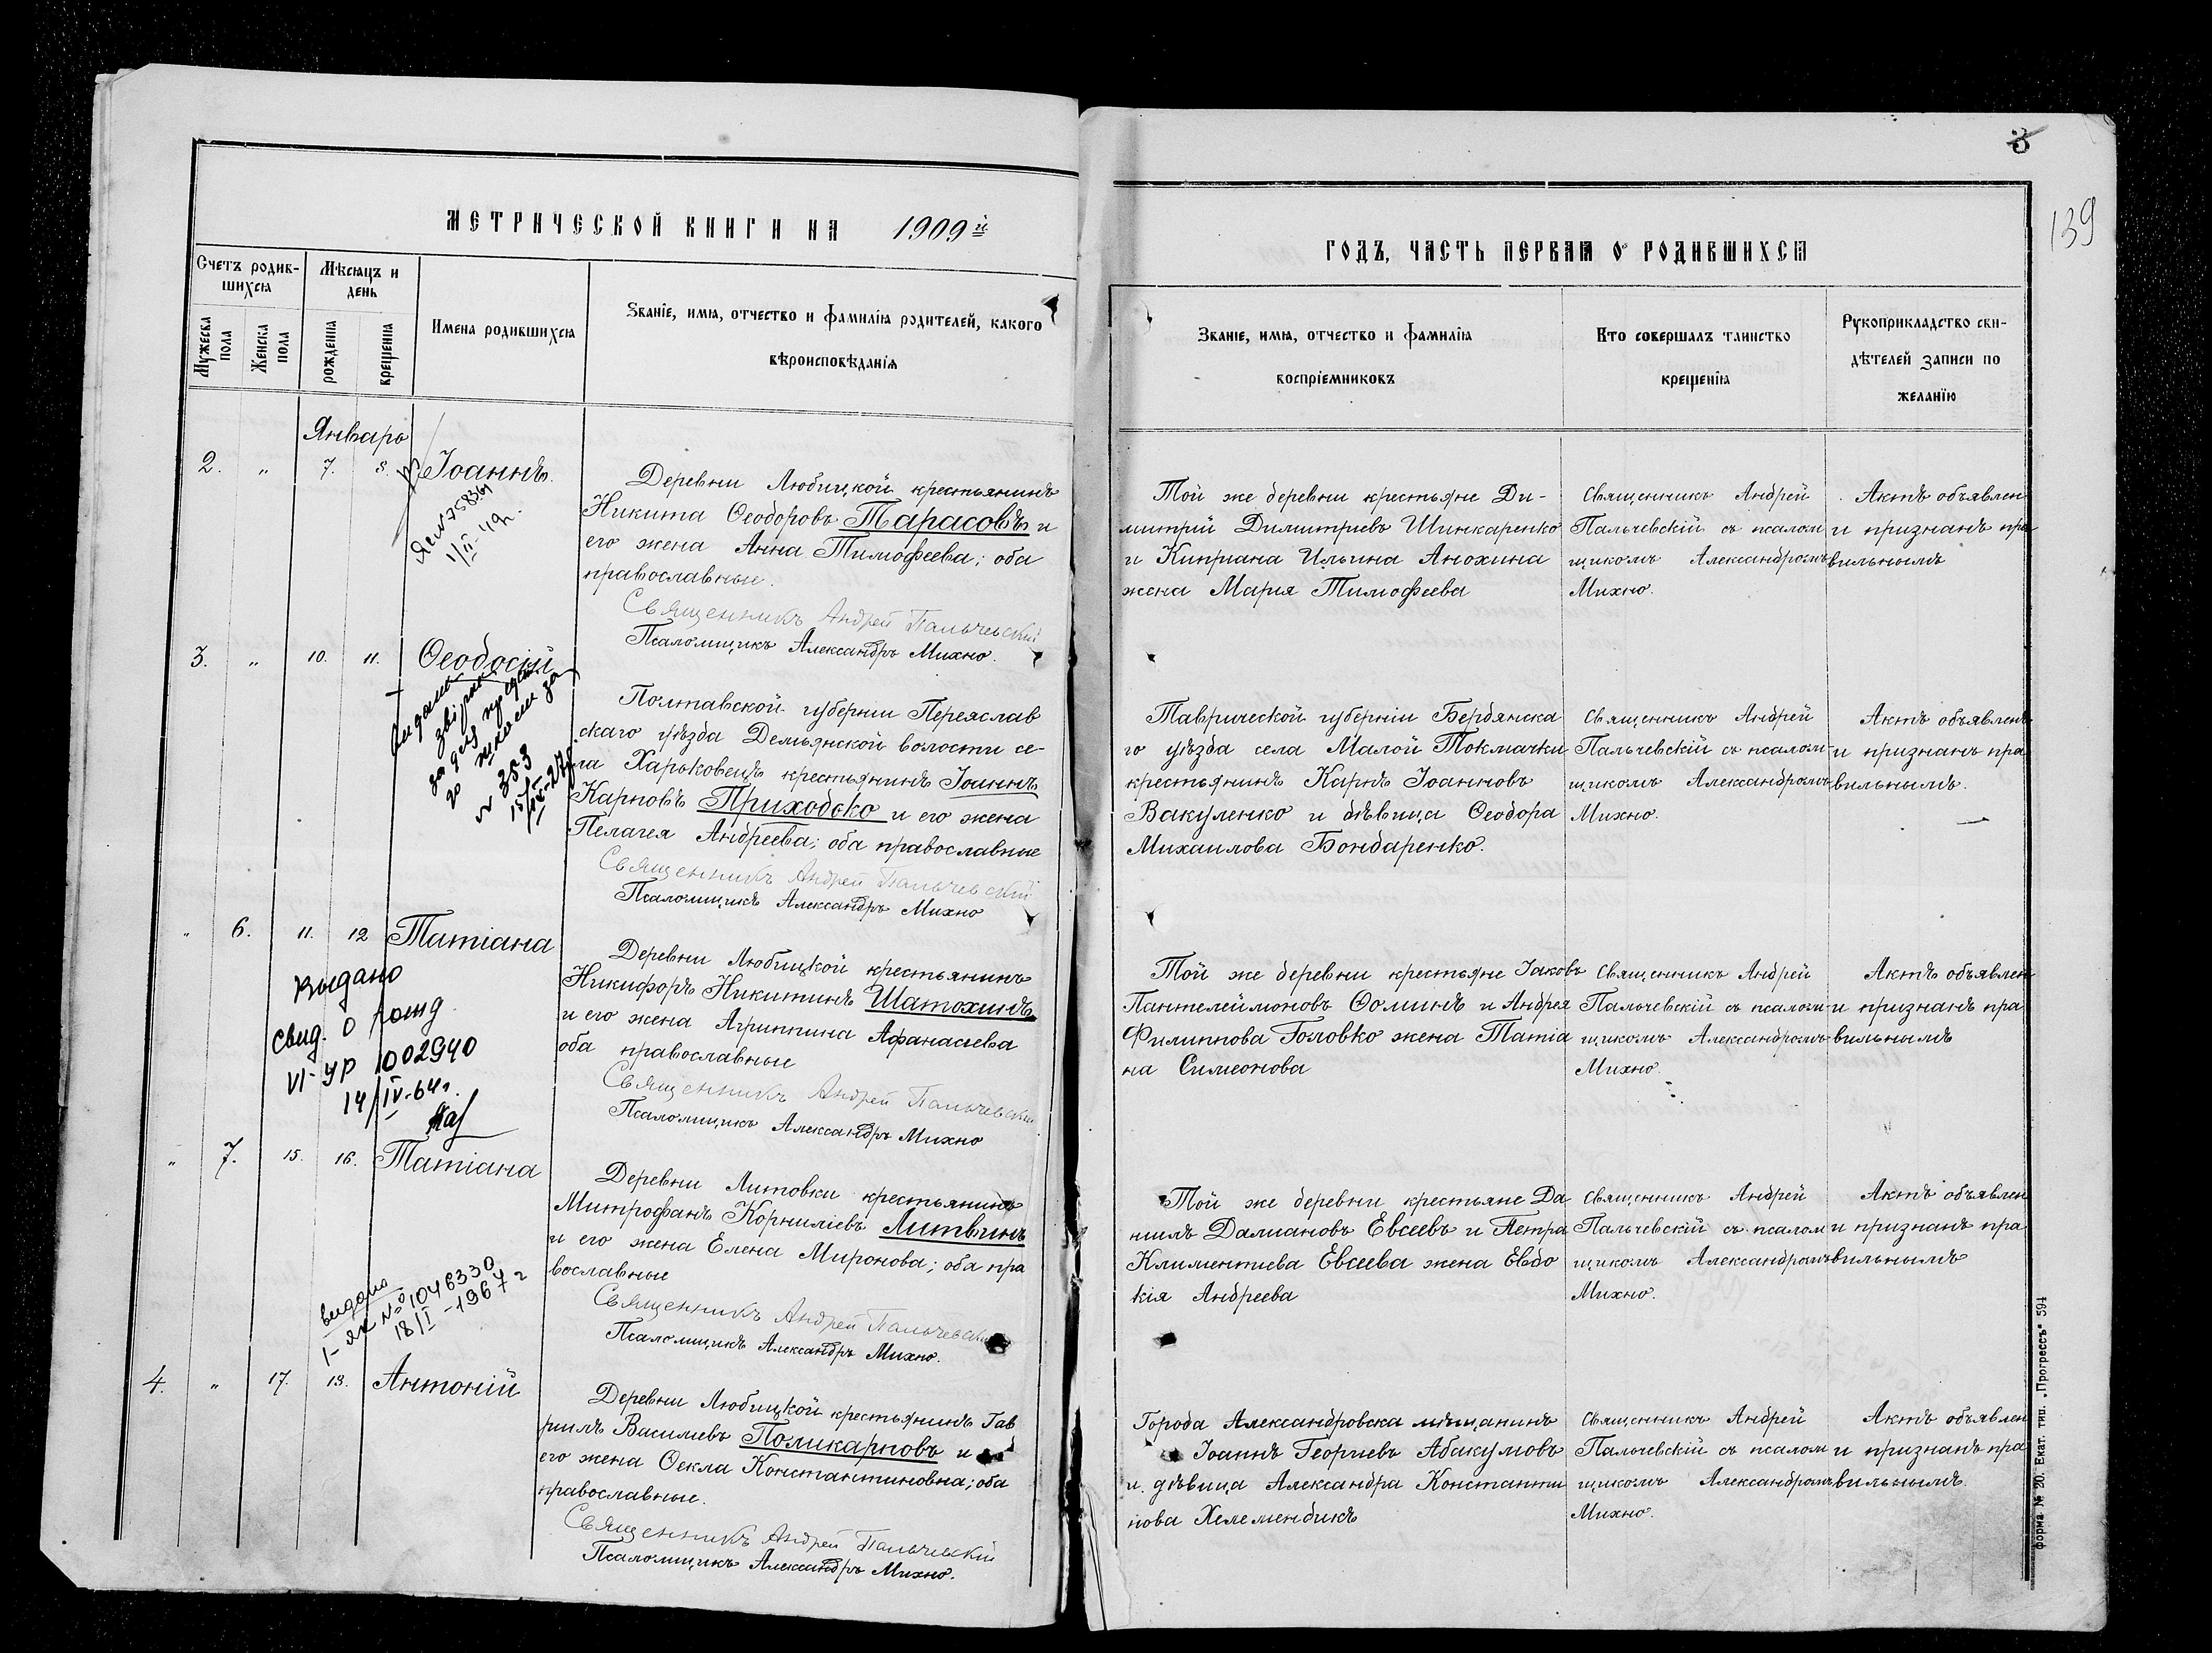 МЕТРИЧЕСКОЙ КНИГИ НА 1909й
Счетъ родив-
шихся
Мѣсяцъ и
день
Мужеска пола
Женска пола
рожденія
крещенія
Имена родившихся
Званіе, имя, отчество и фамилія родителей, какого
вѣроисповѣданія
Январь
2. „ 7. 8. Іоаннъ.
1/II-49г.
Деревни Любицкой крестьянинъ
Никита Ѳеодоровъ Тарасовъ и
его жена Анна Тимофеева; оба
православные.
Священникъ Андрей Пальчевскій
Псаломщикъ Александръ Михно.
3. „ 10. 11. Ѳеодосій
№ 353
15/IX-27р.
Полтавской губерніи Переяслав
скаго уѣзда Демьянской волости се-
ла Харьковецъ крестьянинъ Іоаннъ
Карповъ Приходько и его жена
Пелагея Андреева; оба православные
Священникъ Андрей Пальчевскій
Псаломщикъ Александръ Михно
„ 6. 11. 12 Татіана
Выдано
свид. о рожд.
VI-УР 002940
14/IV-64г.
Деревни Любицкой крестьянинъ
Никифоръ Никитинъ Шатохинъ
и его жена Агриппина Афанасьева
оба православные
Священникъ Андрей Пальчевскій
Псаломщикъ Александръ Михно
„ 7. 15. 16. Татіана
видано
I-ЯК № 1046330
18/I-1967г
Деревни Литовки крестьянинъ
Митрофанъ Корниліевъ Литвинъ
и его жена Елена Миронова; оба пра
вославные
Священникъ Андрей Пальчевскій
Псаломщикъ Александръ Михно.
4. „ 17. 18. Антоній
Деревни Любицкой крестьянинъ Гав
риилъ Василіевъ Поликарповъ и
его жена Ѳекла Константиновна; оба
православные.
Священникъ Андрей Пальчевскій
Псаломщикъ Александръ Михно.
3
139
ГОДЪ, ЧАСТЬ ПЕРВАЯ О РОДИВШИХСЯ
Званіе, имя, отчество и фамилія
воспріемниковъ
Кто совершалъ таинство
крещенія
Рукоприкладство сви-
дѣтелей записи по
желанію
Той же деревни крестьяне Ди-
митрій Димитріевъ Шинкаренко
и Кипріана Ильина Анохина
жена Марія Тимофеева
Священникъ Андрей
Пальчевскій съ псалом
щикомъ Александромъ
Михно.
Актъ объявлен
и признанъ пра
вильнымъ
Таврической губерніи Бердянска
го уѣзда села Малой Токмачки
крестьянинъ Карпъ Іоанновъ
Вакуленко и дѣвица Ѳеодора
Михаилова Бондаренко.
Священникъ Андрей
Пальчевскій съ псалом-
щикомъ Александромъ
Михно.
Актъ объявленъ
и признанъ пра
вильнымъ.
Той же деревни крестьяне Іаковъ
Пантелеймоновъ Ѳоминъ и Андрея
Филиппова Головко жена Татіа
на Симеонова
Священникъ Андрей
Пальчевскій съ псалом-
щикомъ Александромъ
Михно.
Актъ объявлен
и признанъ пра
вильнымъ
Той же деревни крестьяне Да
ниилъ Даміановъ Евсеевъ и Петра
Климентіева Евсеева жена Евдо
кія Андреева
Священникъ Андрей
Пальчевскій съ псалом
щикомъ Александромъ
Михно.
Актъ объявлен
и признанъ пра
вильнымъ
Города Александровска мѣщанинъ
Іоаннъ Георгіевъ Абакумовъ
и дѣвица Александра Константи
нова Хелемендикъ
Священникъ Андрей
Пальчевскій съ псалом
щикомъ Александромъ
Михно.
Актъ объявлен
и признанъ пра
вильнымъ.
Форма № 20. Екат. тип. „Прогрессъ“ 594